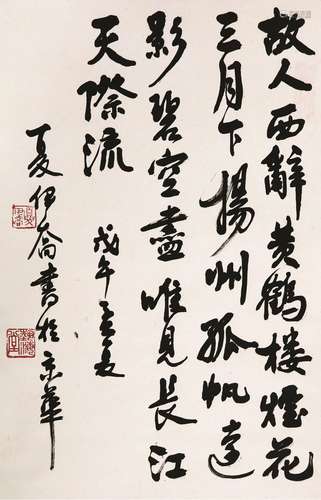 故人西辭黄鶴楼煙花
三月下揚州孤帆遠
影碧空盡唯見長江
天際流
戊午孟夏
夏伊喬書於京華